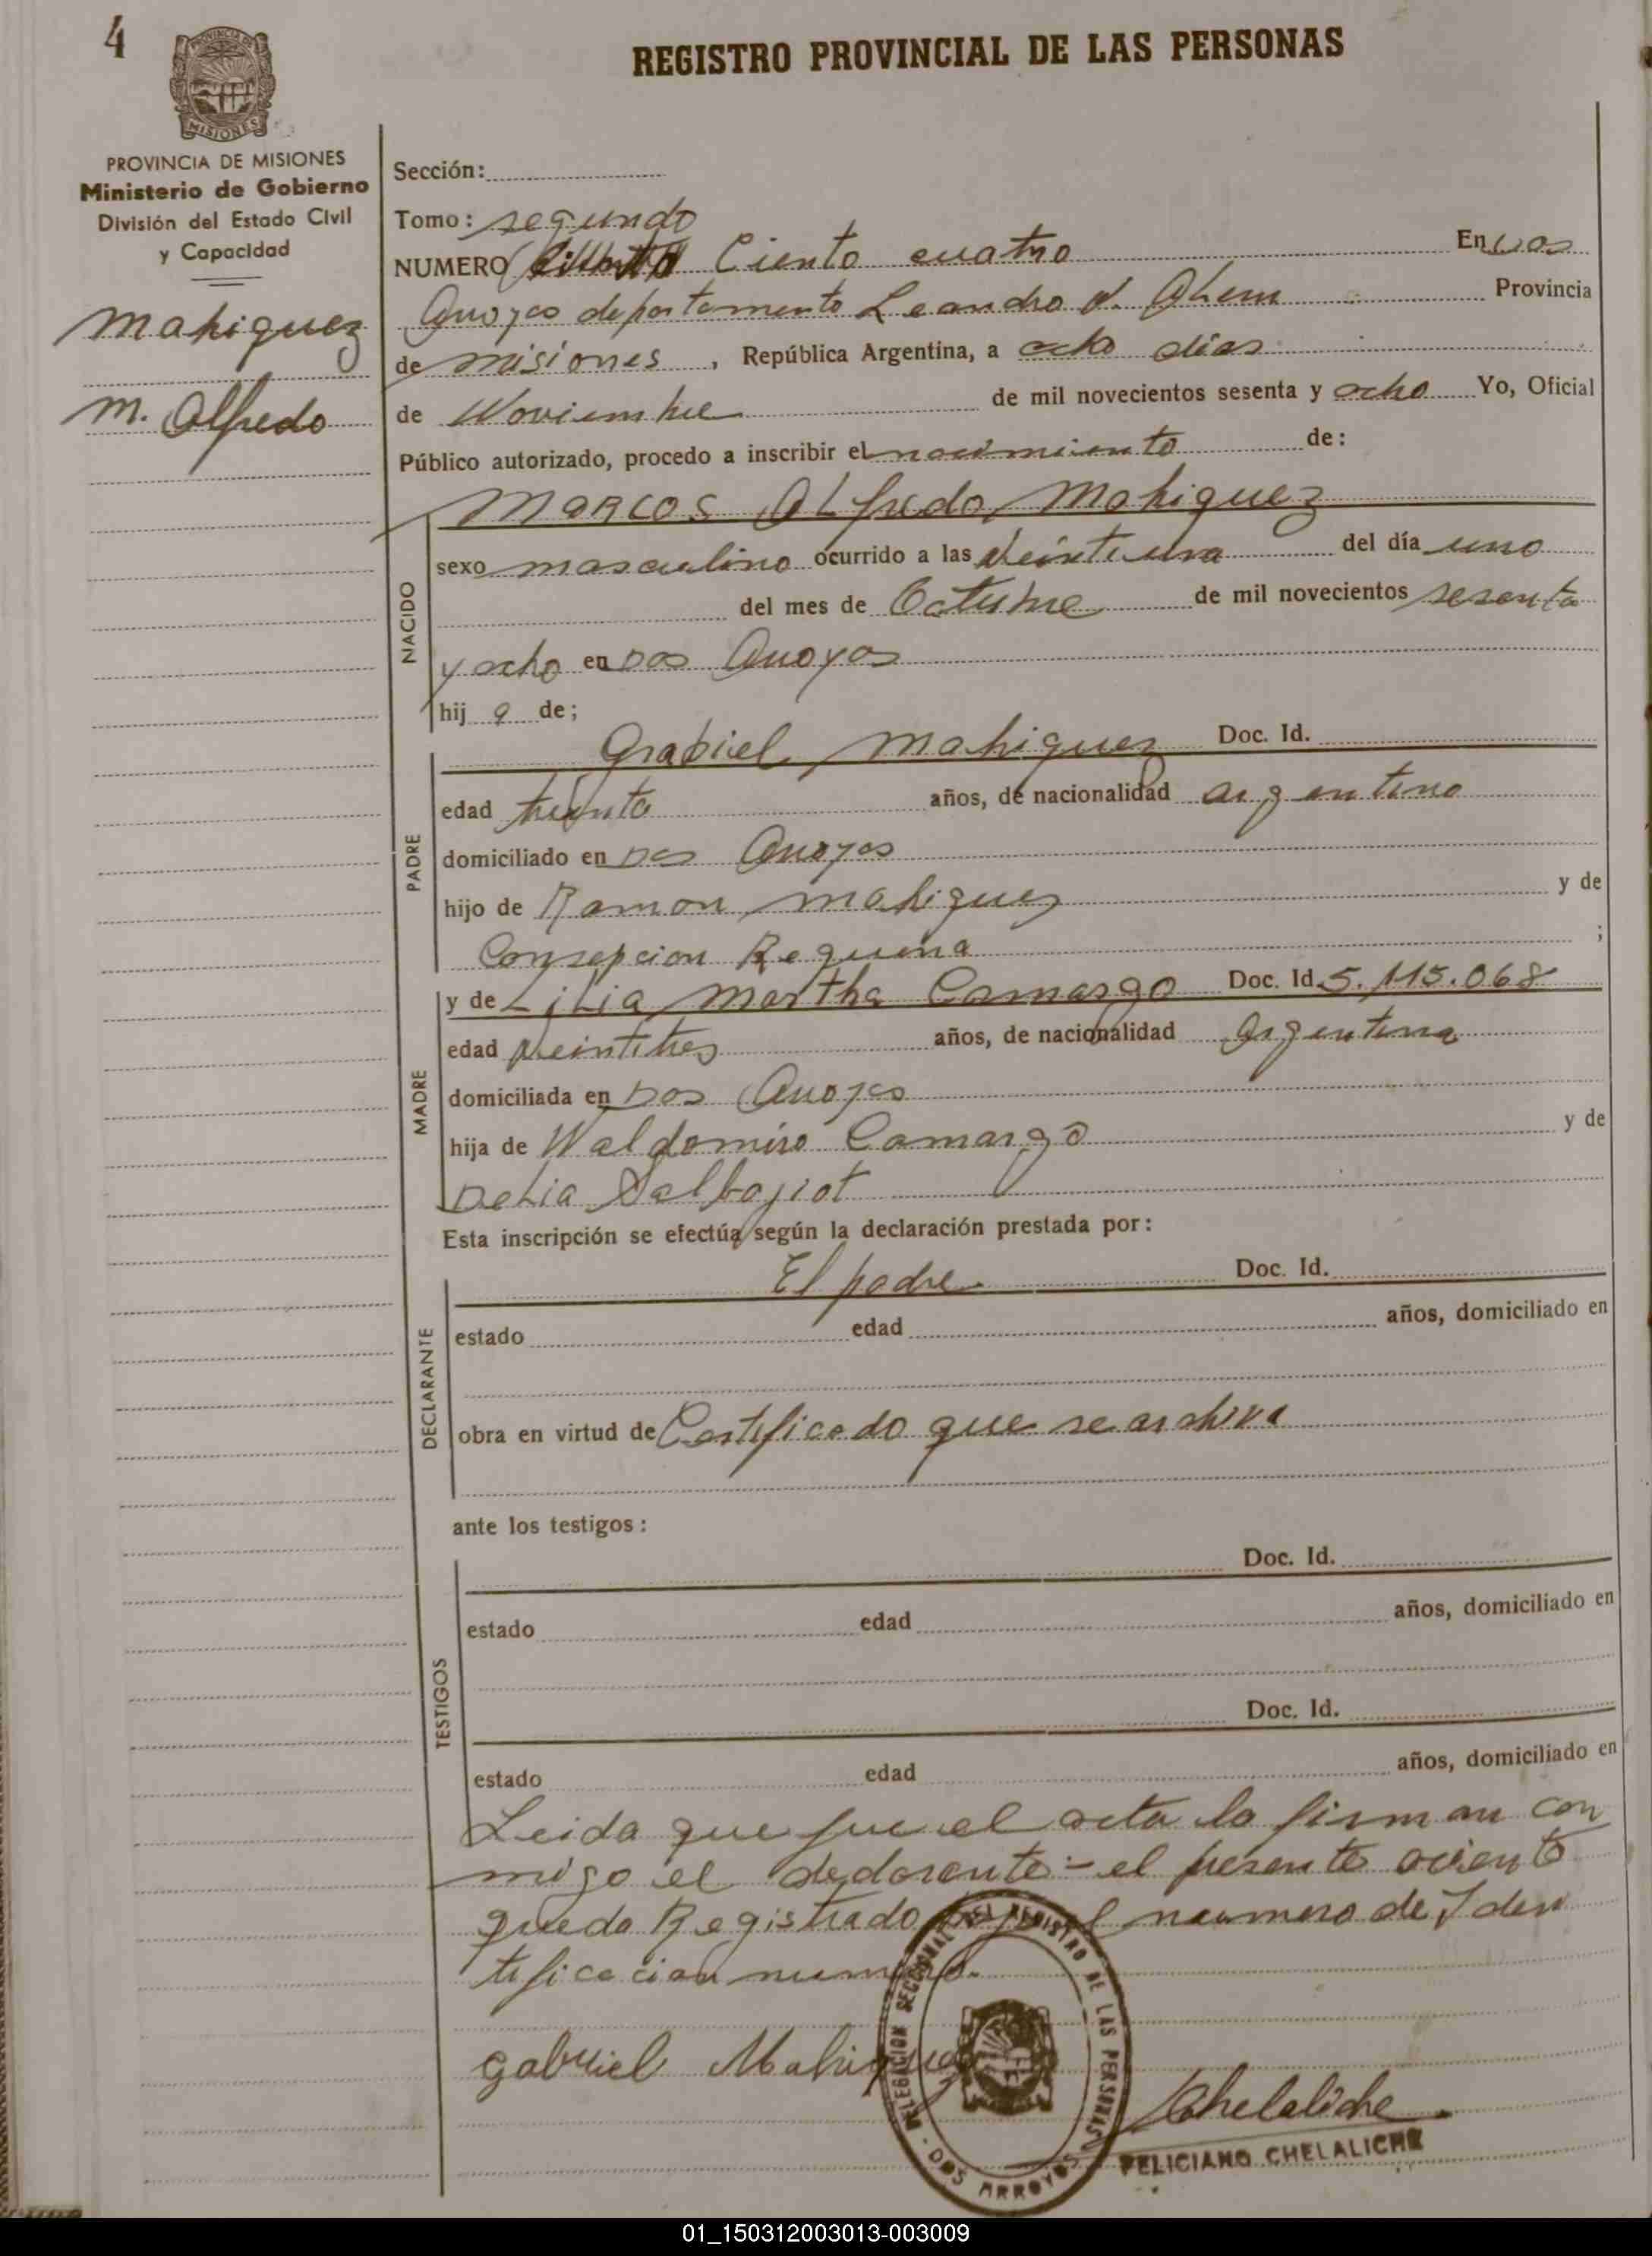 4
REGISTRO PROVINCIAL DE LAS PERSONAS
MISIONES
PROVINCIA DE MISIONES
Ministerio de Gobierno
División del Estado Civil
y Capacidad
Mahiguez
M. Alfredo
Sección:
Tomo: segundo
NUMERO Ciento cuatro En Dos
Arroyos departamento Leandro N. Alem Provincia
de Misiones, República Argentina, a ocho dias
de Noviembre de mil novecientos sesenta y ocho Yo, Oficial
Público autorizado, procedo a inscribir el nacimiento de:
NACIDO
Marcos Alfredo Mahiguez
sexo masculino ocurrido a las veintiuna del día uno
del mes de Octubre de mil novecientos sesenta
y ocho en Dos Arroyos
hij o de;
PADRE
Grabiel Mahiguez Doc. Id.
edad treinta años, de nacionalidad argentino
domiciliado en Dos Arroyos
hijo de Ramon Mahiguez y de
Consepcion Requena ;
MADRE
y de Lilia Martha Camargo Doc. Id. 5.115.068
edad veintitres años, de nacionalidad Argentina
domiciliada en Dos Arroyos
hija de Waldomiro Camargo y de
Delia
Esta inscripción se efectúa según la declaración prestada por:
DECLARANTE
El padre Doc. Id.
estado edad años, domiciliado en
obra en virtud de Certificado que se archiva
ante los testigos:
TESTIGOS
Doc. Id.
estado edad años, domiciliado en
Doc. Id.
estado edad años, domiciliado en
Leida que fue el acta la firman con
migo el declarante:- el presente
queda Registrado bajo el numero de Iden
tificacion numero.
DELEGACION SECCIONAL DEL REGISTRO DE LAS PERSONAS
- DOS ARROYOS
Gabriel Mahiguez
Chelaliche
FELICIANO CHELALICHE
01_150312003013-003009